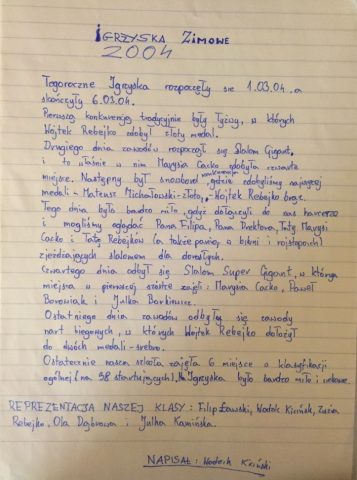 IGRZYSKA ZIMOWE
2004
Tegoroczne Igrzyska rozpoczęły sie 1.03.04. a
skończyły 6.03.04.
Pierwszą konkurencją tradycyjnie były łyżwy, w których
Wojtek Rebejko zdobył złoty medal.
Drugiego dnia zawodów rozpoczął się Slalom Gigant,
i to właśnie w nim Marysia Cacko zdobyła czwarte
miejsce. Następny był snowboard konkurencja, gdzie zdobyliśmy najwięcej
medali - Mateusz Michałowski - złoto, Wojtek Rebejko brąz.
Tego dnia było bardzo miło, gdyż dołączyli do nas harcerze
i mogliśmy oglądać Pana Filipa, Pana Rektora, Taty Marysi
Cacko i Tatę Rebejków (a także panią w bikini i rajstopach)
zjeżdżających slalomem dla dorosłych.
Czwartego dnia odbył się Slalom Super Gigant, w którym
miejsca w pierwszej szóstce zajęli: Marysia Cacko, Paweł
Borowiak i Julka Borkiewicz.
Ostatniego dnia zawodów odbyły się zawody
nart biegowych, w których Wojtek Rebejko dołożył
do dwóch medali - srebro.
Ostatecznie nasza szkoła zajęła 6 miejsce w klasyfikacji
ogólnej (na 38 startujących). Na Igrzyska było bardzo miło i ciekawie.
REPREZENTACJA NASZEJ KLASY: Filip Ławski, Wodzik Kiciński, Zuzia
Rebejko, Ola Dąbrowa i Julka Kamińska.
NAPISAŁ: Wodzik Kiciński